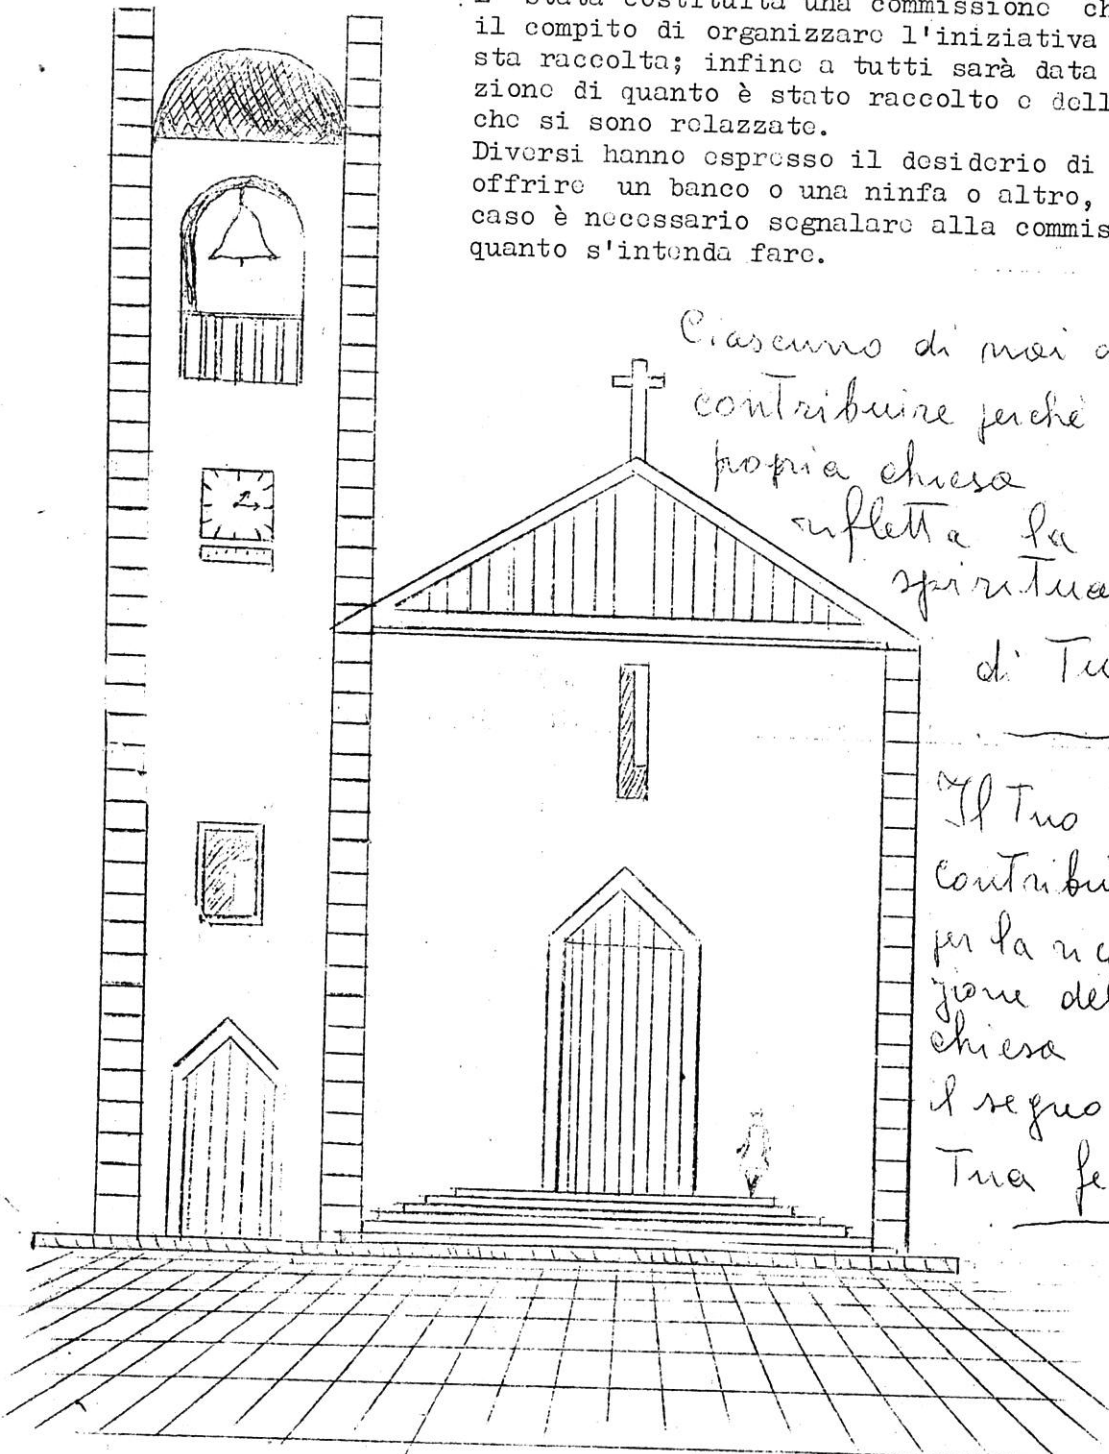 E' stata costituita una commissione
il compito di organizzare l'iniziativa
sta raccolta; infine a tutti sarà data
zione di quanto è stato raccolto e dell
che si sono relazzate.
Diversi hanno espresso il desiderio di
offrire un banco o una ninfa o altro,
caso è necessario segnalare alla commis
quanto s'intenda fare.
Ciascuno di noi
contribuire perché
propria chiesa
rifletta la
spiritua
di Tu
Il Tuo
contribu
per la
zione del
chiesa
il segno
Tua fe